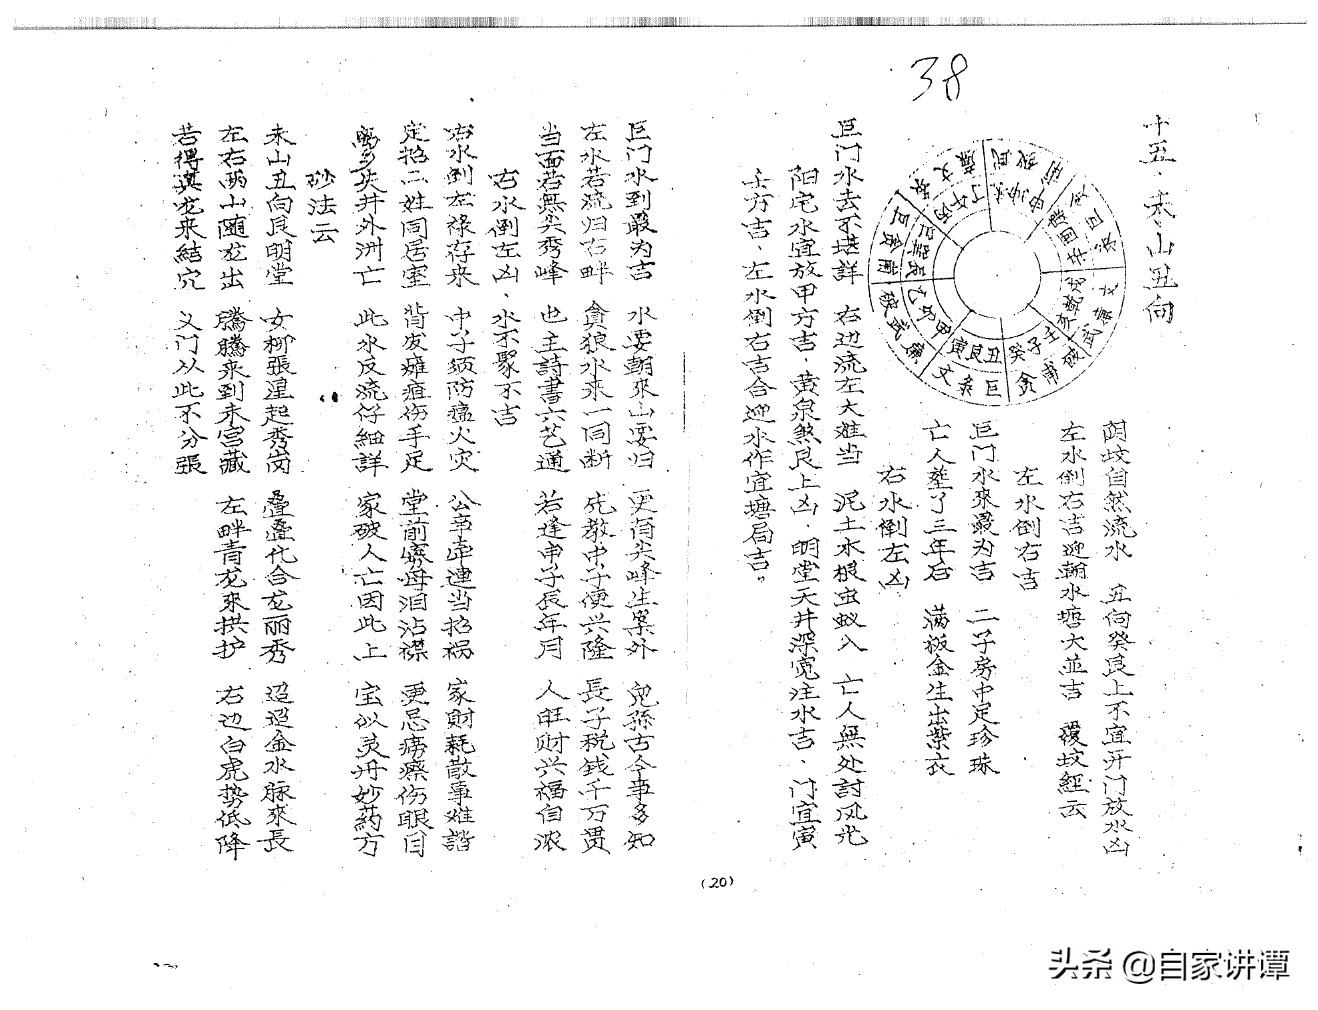 38
十五、未山丑向
阴坟自然流水 丑向癸艮上不宜开门放水凶
左水倒右吉迎朝水塘大並吉 覆坟經云
左水倒右吉
巨门水來最为吉 二子房中足珍珠
亡人塟了三年后 满板金生出紫衣
右水倒左凶
巨门水去不堪詳 右边流左大难当 泥土水根虫蚁入 亡人無处討风光
阳宅水宜放甲方吉、黄泉煞艮上凶、明堂天井深宽注水吉、门宜寅
壬方吉、左水倒右吉合迎水作宜塘局吉。
巨门水到最为吉 水要朝來山要归 更有尖峰生案外 兒孫古今事多知
左水若流归右畔 貪狼水来一同断 先教中子便兴隆 長子税钱千万贯
当面若無尖秀峰 也主詩書六艺通 若逢申子辰年月 人旺财兴福自浓
右水倒左凶、水不聚不吉
右水倒左禄存来 中子须防瘟火灾 公事牵連当招祸 家财耗散事难諧
定招二姓同居室 背发癰疽伤手足 堂前寡母泪沾襟 更忌痨瘵伤眼目
离乡失井外洲亡 此水反流仔細詳 家破人亡因此上 宝似灵丹妙药方
砂法云
未山丑向艮明堂 女柳張湟起秀岗 叠叠化合龙丽秀 迢迢金水脉來長
左右两山随龙出 騰騰來到未宫藏 左畔青龙來拱护 右边白虎势低降
若得真龙來結穴 义门从此不分張
(20)
丁午丙
申坤未
辛戌
亥乾戌
癸子壬
寅艮丑
乙卯甲
巳巽辰
文廉武破
文禄巨
貪
头条 @自家讲谭